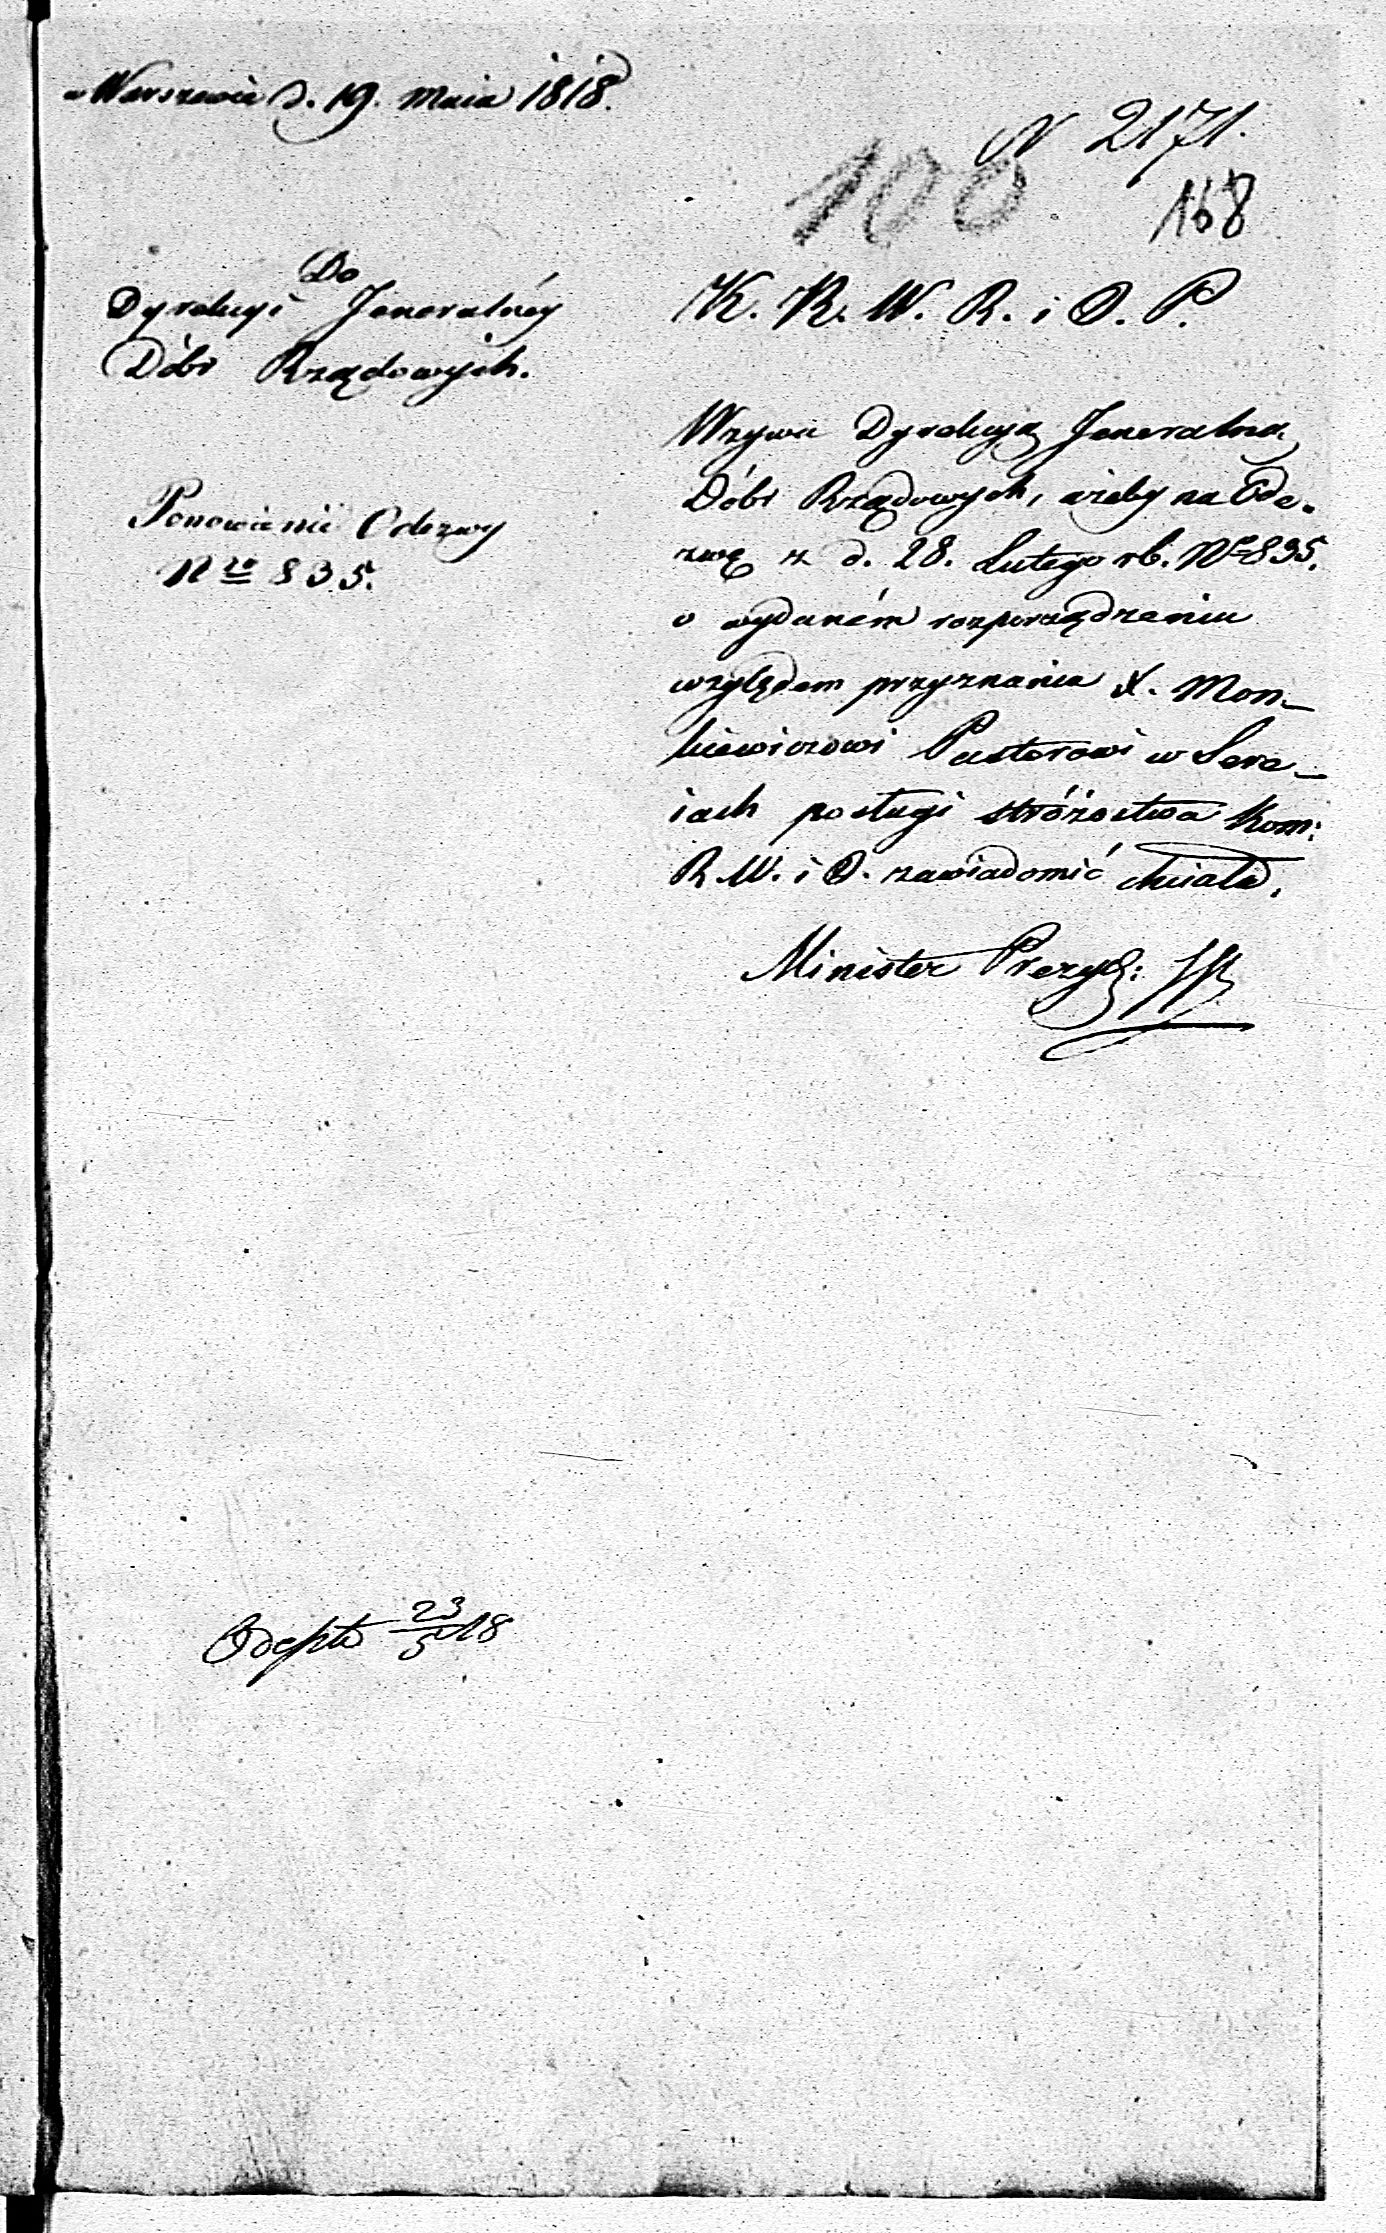 w Warszawie d. 19. Maia 1818.
N 2171.
100
168
Do
Dyrekcyi Jeneralnéy
Dóbr Rządowych.
Ponowienie Odezwy
N<sup>ro</sup> 835.
K. R. W. R. i O. P.
Wzywa Dyrekcyą Jeneralną
Dóbr Rządowych, ażeby na Ode-
zwę z d. 28. Lutego rb. N<sup>o</sup> 835.
o wydaném rozporządzeniu
względem przyznania X. Mon-
kiewiczowi Pastorowi w Sere-
iach posługi stróżostwa Kom:
R. W. i O. zawiadomić chciała.
Minister Prezyd:
Odeszło 23/5 18